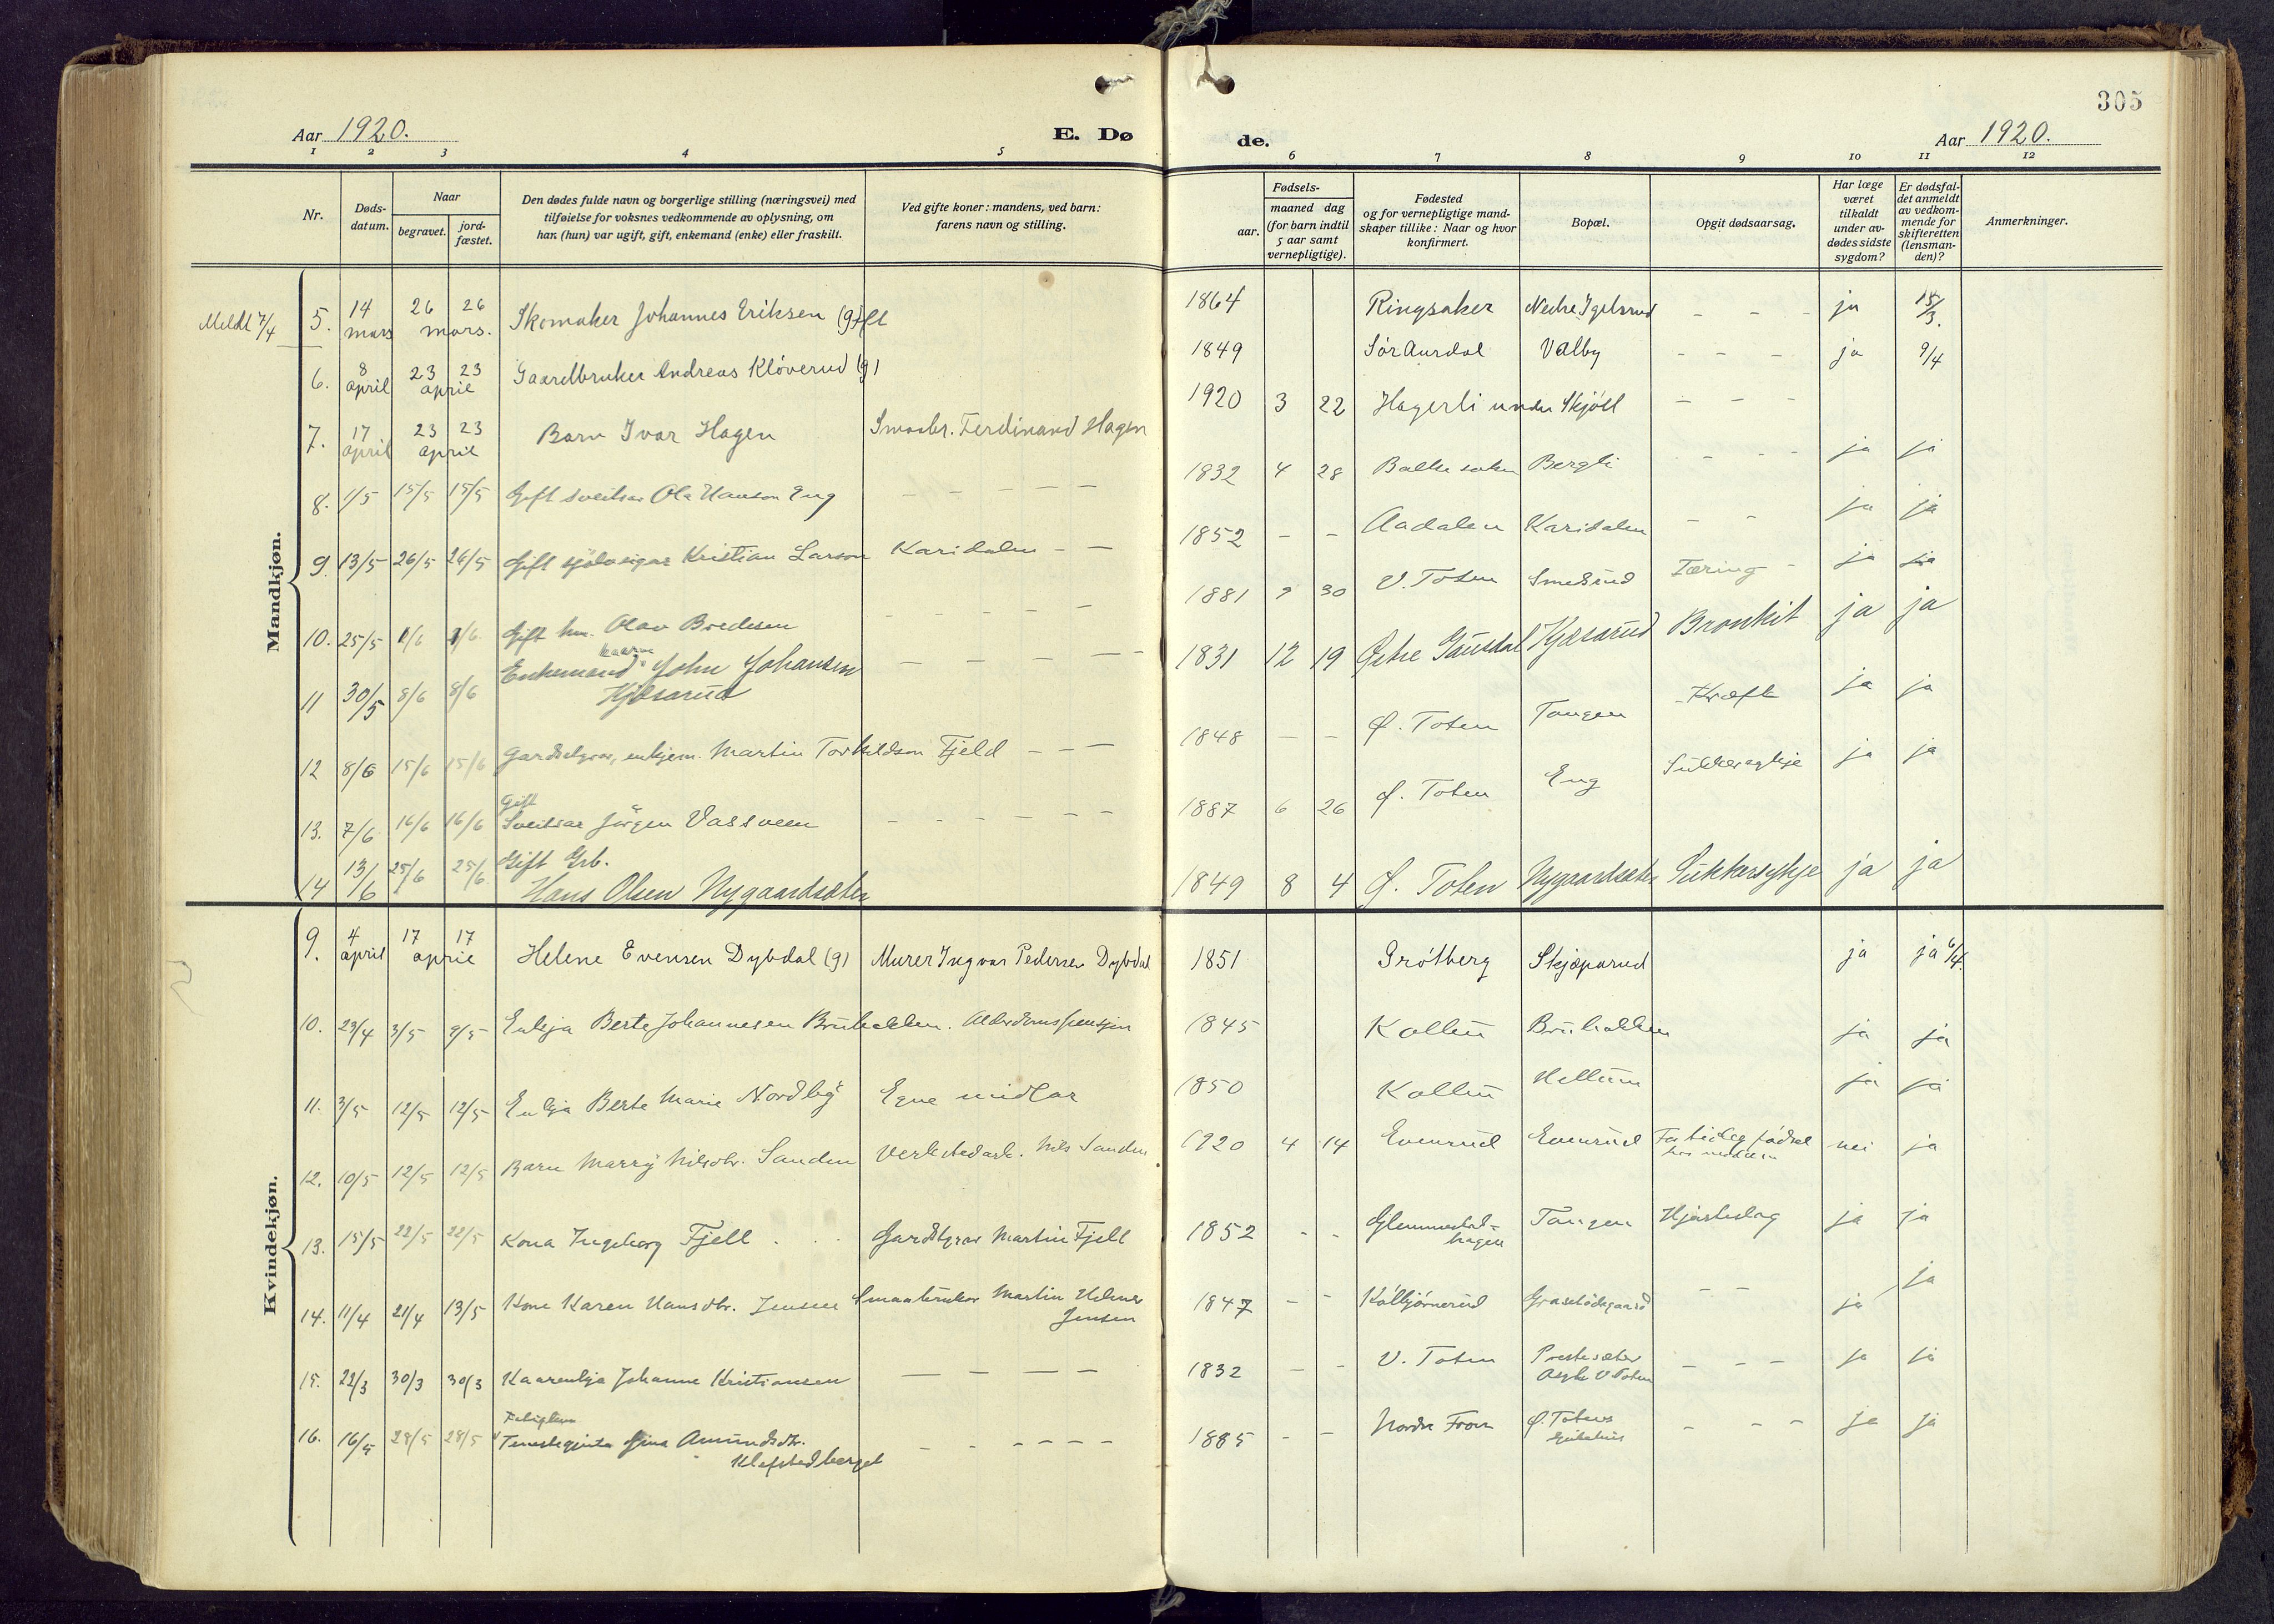 305
Aar 1920.
E. Dø
de.
Aar 1920.
1 2 3 4 5 6 7 8 9 10 11 12
Nr.
Døds-
datum.
Naar
begravet.
jord-
fæstet.
Den dødes fulde navn og borgerlige stilling (næringsvei) med
tilføielse for voksnes vedkommende av oplysning, om
han (hun) var ugift, gift, enkemand (enke) eller fraskilt.
Ved gifte koner: mandens, ved barn:
farens navn og stilling.
Fødsels-
aar.
maaned dag
(for barn indtil
5 aar samt
vernepligtige).
Fødested
og for vernepligtige mand-
skaper tillike: Naar og hvor
konfirmert.
Bopæl.
Opgit dødsaarsag.
Har læge
været
tilkaldt
under av-
dødes sidste
sygdom?
Er dødsfal-
det anmeldt
av vedkom-
mende for
skifteretten
(lensman-
den)?
Anmerkninger.
Mandkjøn.
Meldt 7/4 5. 14 mars 26 26 mars. Skomaker Johannes Eriksen (gift 1864 Ringsaker Nedre Igelsrud - - - ja 15/3.
6. 8 april 23 23 april Gaardbruker Andreas Kløverud (g) 1849 Sør Aurdal Valby - - - ja 9/4
7. 17 april 23 23 april Barn Ivar Hagen Smaabr. Ferdinand Hagen 1920 3 22 Hagerli under Skjøll - - -
8. 1/5 15/5 15/5 Gift sveitsar Ole Hanson Eng - - - - - 1832 4 28 Balke sokn Bergli - - - ja ja
9. 13/5 26/5 26/5 Gift sjølveigar Kristian Larson Karidalen - - 1852 - - Aadalen Karidalen - - ja ja
10. 25/5 1/6 1/6 Gift hm. Olav Bredesen - - - - - 1881 9 30 V. Toten Smedsrud Tæring - ja ja
11 30/5 8/6 8/6 Enkemand John Johansen
Kjøsarud - - - - - 1831 12 19 Østre Gausdal Kjøsarud Bronkit ja ja
12 8/6 15/6 15/6 enkjem. Martin Torkildson Fjeld - - - 1848 - - Ø. Toten Tangen Kræft ja ja
13. 7/6 16/6 16/6 Gift
Sveitsar Jørgen Vassveen - - - - - 1887 6 26 Ø. Toten Eng Sukkersykje ja ja
14 13/6 25/6 25/6 Gift Grb.
Hans Olsen Nygaardsæter 1849 8 4 Ø. Toten Nygaardsæter Sukkersykje ja ja
Kvindekjøn.
9. 4 april 17 17 april Helene Evensen Dybdal (g) Murer Ingvar Pedersen Dybdal 1851 Grøtberg Skjæparud ja ja 6/4.
10. 23/4 3/5 9/5 Enkja Berte Johannesen Bruhakken. Alderdomspensjon 1845 Kolbu Bruhakken ja ja
11. 3/5 12/5 12/5 Enkja Berte Marie Nordby Egne midlar 1850 Kolbu Hellum ja ja
12. 10/5 12/5 12/5 Barn Marry Nilsdtr. Sanden Verkstedarb. Nils Sanden 1920 4 14 Evenrud Evenrud For tidleg fødsel nei ja
13. 15/5 22/5 22/5 Kona Ingeborg Fjell Gardbrar Martin Fjell 1852 - - Glemmestad-
hagen Tangen Hjarteslag ja ja
14. 11/4 21/4 13/5 Kone Karen Hansdtr. Jensen Smaabrukar Martin Helmer
Jensen 1847 - - Kolbjørnerud - - ja ja
15. 22/3 30/3 30/3 Kaarenkja Johanne Kristiansen - - - - 1832 - - V. Toten Prestesæter
V Toten - - - ja ja
16. 16/5 28/5 28/5 Tenestegjenta Gina Amundsdtr.
Klefstadberget - - - - - - 1885 - - Nordre Fron Ø. Totens
- - - ja ja